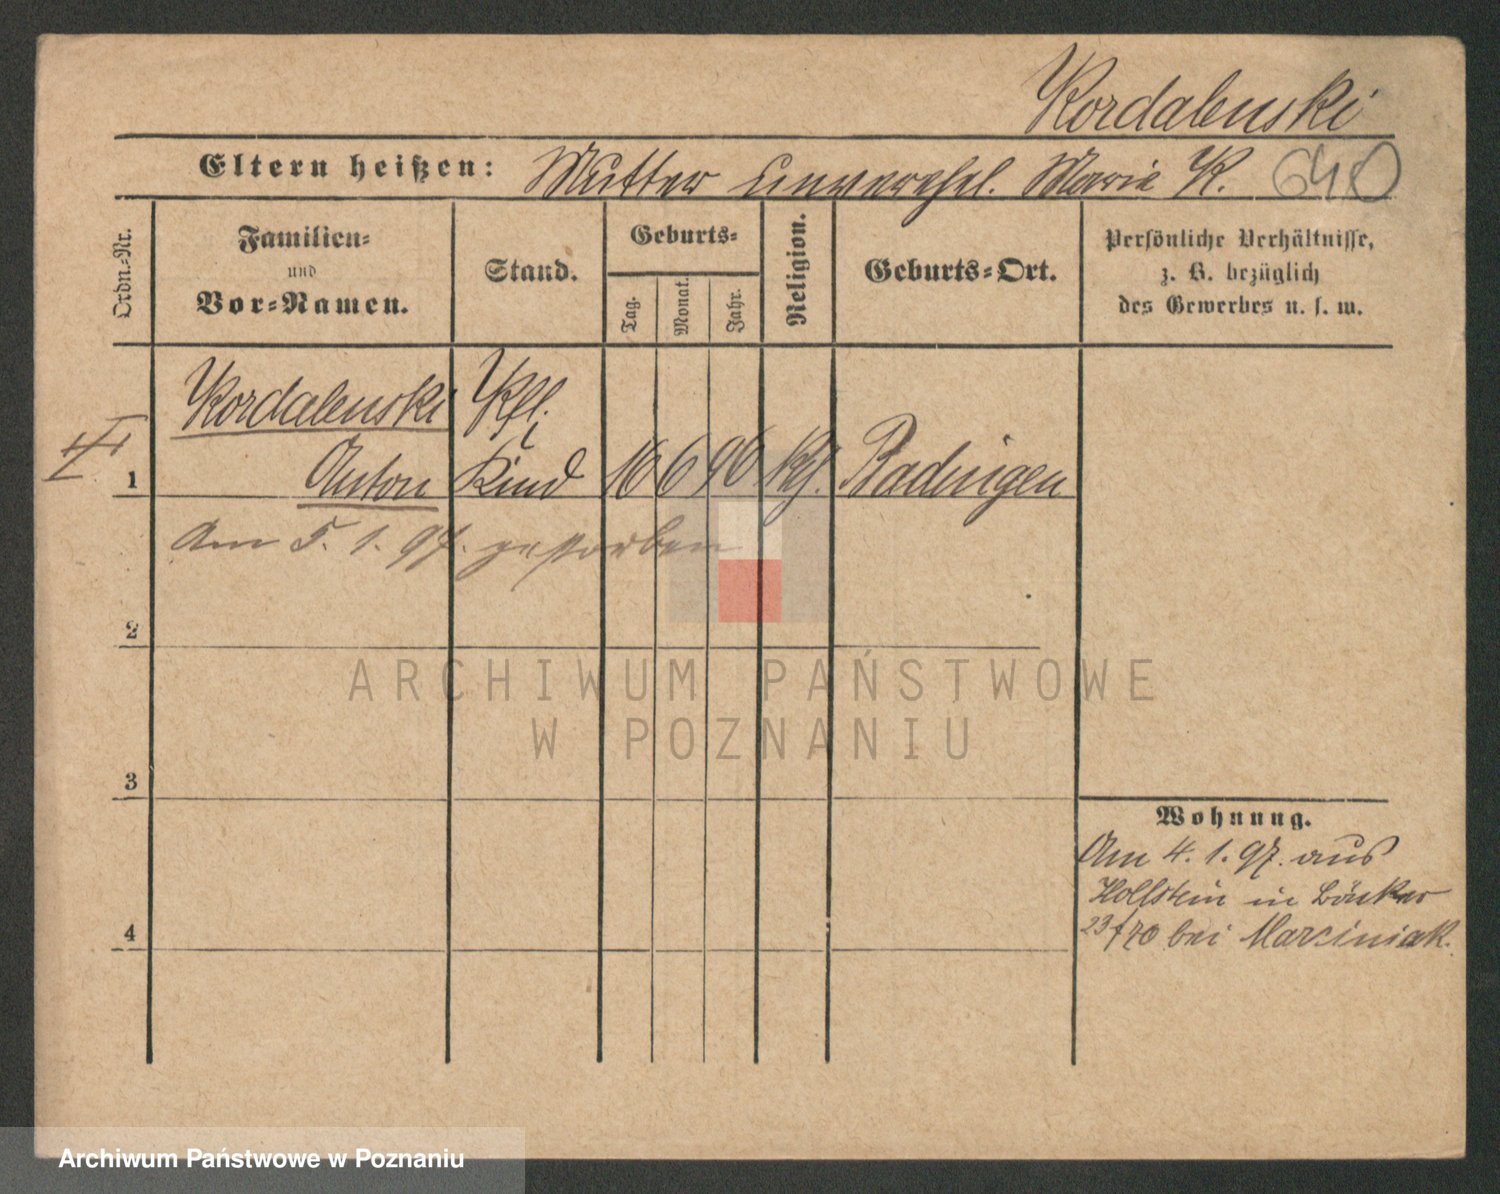 Kordalenski
Eltern heißen: Mutter unverehel. Marie K. 640
Ordn.-Nr.
Familien-
und
Vor-Namen.
Stand.
Geburts-
Tag.
Monat.
Jahr.
Religion.
Geburts-Ort.
Persönliche Verhältnisse,
z. B. bezüglich
des Gewerbes u. s. w.
Kordalenski
1 Anton Kind 16 6 96 kth.
am 5. 1. 97. gestorben
2
3
4
Wohnung.
Am 4. 1. 97. aus
Hollstein in Bäcker
23/70 bei Marciniak.
ARCHIWUM PAŃSTWOWE
W POZNANIU
Archiwum Państwowe w Poznaniu